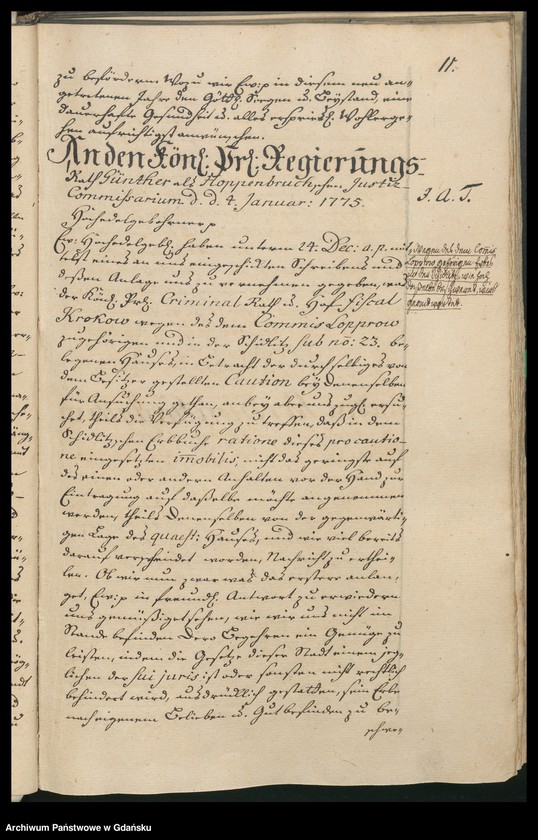 11.
zu befördern. Wozu wir Ew: p in diesem neu an-
getretenen Jahre den Göttl. Seegen u. Beystand, eine
dauerhafte Gesundheit u. alles ersprießl. Wohlerge-
hen aufrichtigst anwünschen.
An den Königl: Prß: Regierungs-
Rath Günther als Hoppenbruchschen Justiz-
Commissarium d. d. 4 Januar: 1775.
J. A. T.
Hochedelgebohrner p
Ew: Hochedelgebl. haben unterm 24. Dec: a. p. mit-
telst eines an uns eingeschickten Schreibens und
deßen Anlage uns zu vernehmen gegeben, was
der Königl. Prß. Criminal Rath u. Hof Fiscal
Krokow wegen des dem Commis Lopprow
zugehörigen und in der Schidlitz sub nō: 23. be-
legenen Hauses, in Betracht der durch selbiges von
dem Besitzer gestellten Caution bey Denenselben
für Ansuchung gethan, anbey aber uns zugl. ersu-
chet, theils die Verfügung zu treffen, daß in dem
Schidlitzschen Erbbuche ratione dieses pro cautio-
ne eingesetzten immobilis, nicht das geringste auf
des einen oder andern Anhalten vor der Hand zur
Eintragung auf daßelbe möchte angenommen
werden, theils Denenselben von der gegenwärti-
gen Lage des quaest: Hauses, und wie viel bereits
darauf verpfändet worden, Nachricht zu erthei-
len. Ob wir nun zwar was das erstere anlan-
get, Ew: p in freundl. Antwort zu erwiedern
uns gemüßiget sehen, wie wir uns nicht im
Stande befinden Dero Begehren ein Genüge zu
leisten, indem die Gesetze dieser Stadt einem jeg-
lichen der sui juris ist oder sonsten nicht rechtlich
behindert wird, ausdrücklich gestatten, sein Erbe
nach eigenem Belieben u. Gutbefinden zu be-
schwe-
Wegen des dem Comis
Lopprow gehörigen
Archiwum Państwowe w Gdańsku